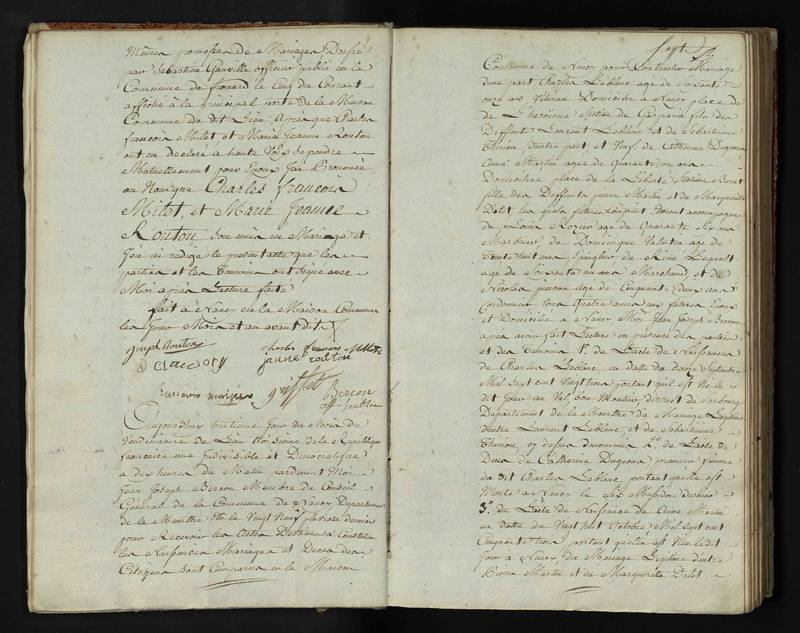 Mêmes promesses de Mariages Dressé
par Sébastien Gauville officier public en la
Commune de frouard le Cinq du Courant
affiché à la principal porte de la Maison
Commune du dit Lieu. Après que Charles
francois Milot et Marie Jeanne Routou
ont eu Declaré a haute Voix se prendre
Mutuellement pour Epoux J'ai Prononcé
au Nom que Charles francois
Milot, et Marie Jeanne
Routou Sont unis en Mariage et
J'en ai rédigé le présent acte que les
parties et les Temoins ont Signé avec
Moi après Lecture faite
fait a Nancy en la Maison Commune
les Jour Mois et an avant dit
Joseph Routou Charles francois Milot
Claudory janne routou
griffet Bercon
off. public
Aujourdhuy huitieme Jour du Mois de
Vendémiaire de L'an troisieme de la République
francaise une Indivisible et Democratique
a dix heures du Matin pardevant Moi
Jean Joseph Bercon Membre du Conseil
Général de la Commune de Nancy Departement
de la Meurthe élu le Vingt Neuf pluviose dernier
pour Recevoir les Actes Destinés a Constater
les Naissances Mariages et Deces des
Citoyens Sont Comparus en la Maison
Sept
Commune de Nancy pour Contracter Mariage
dune part Charles Leblanc age de Soixante
onze ans Vétéran Domicilié a Nancy place de
de L'heureuse Section de fils des
Deffunts Laurent Leblanc et de Sébastienne
Thirion d'autre part et Veuf de Catherine Dugeona
Anne Martin agee de Quarante un ans
Domiciliée place de la Liberté Section
fille des Deffunts pierre Martin et de Marguerite
Delot les quels futurs Conjoints Etoient accompagnés
de Louis Rozier age de Quarante Six ans
Marbrier, de Dominique Valentin age de
trente huit ans Epinglier de Réné Legrant
age de Soixante un ans Marchand, et de
Nicolas pierson age de Cinquante Deux ans
Cordonnier tous Quatre amis aux futurs Epoux
et Domiciliés a Nancy Moi Jean Joseph Bercon
apres avoir fait Lecture en presence des parties
et des Temoins 1o. de L'acte de Naissance
de Charles Leblanc en datte du douze Septembre
Mil Sept cent Vingt trois portant qu'il est Né le
dit Jour au Val bon Moutier District de Sarbourg
Departement de la Meurthe du Mariage Légitime
dentre Laurent Leblanc et de Sébastienne
Thirion, cy dessus denommés 2o. de L'acte de
Deces de Catherine Dugeona premiere femme
du dit Charles Leblanc portant quelle est
Morte a Nancy le Six Messidor dernier
3o. de L'acte de Naissance de Anne Martin
en datte du Vingt huit Octobre Mil Sept cent
Cinquante trois portant quelle est Née le dit
Jour a Nancy, du Mariage Légitime d'entre
Pierre Martin et de Marguerite Delot